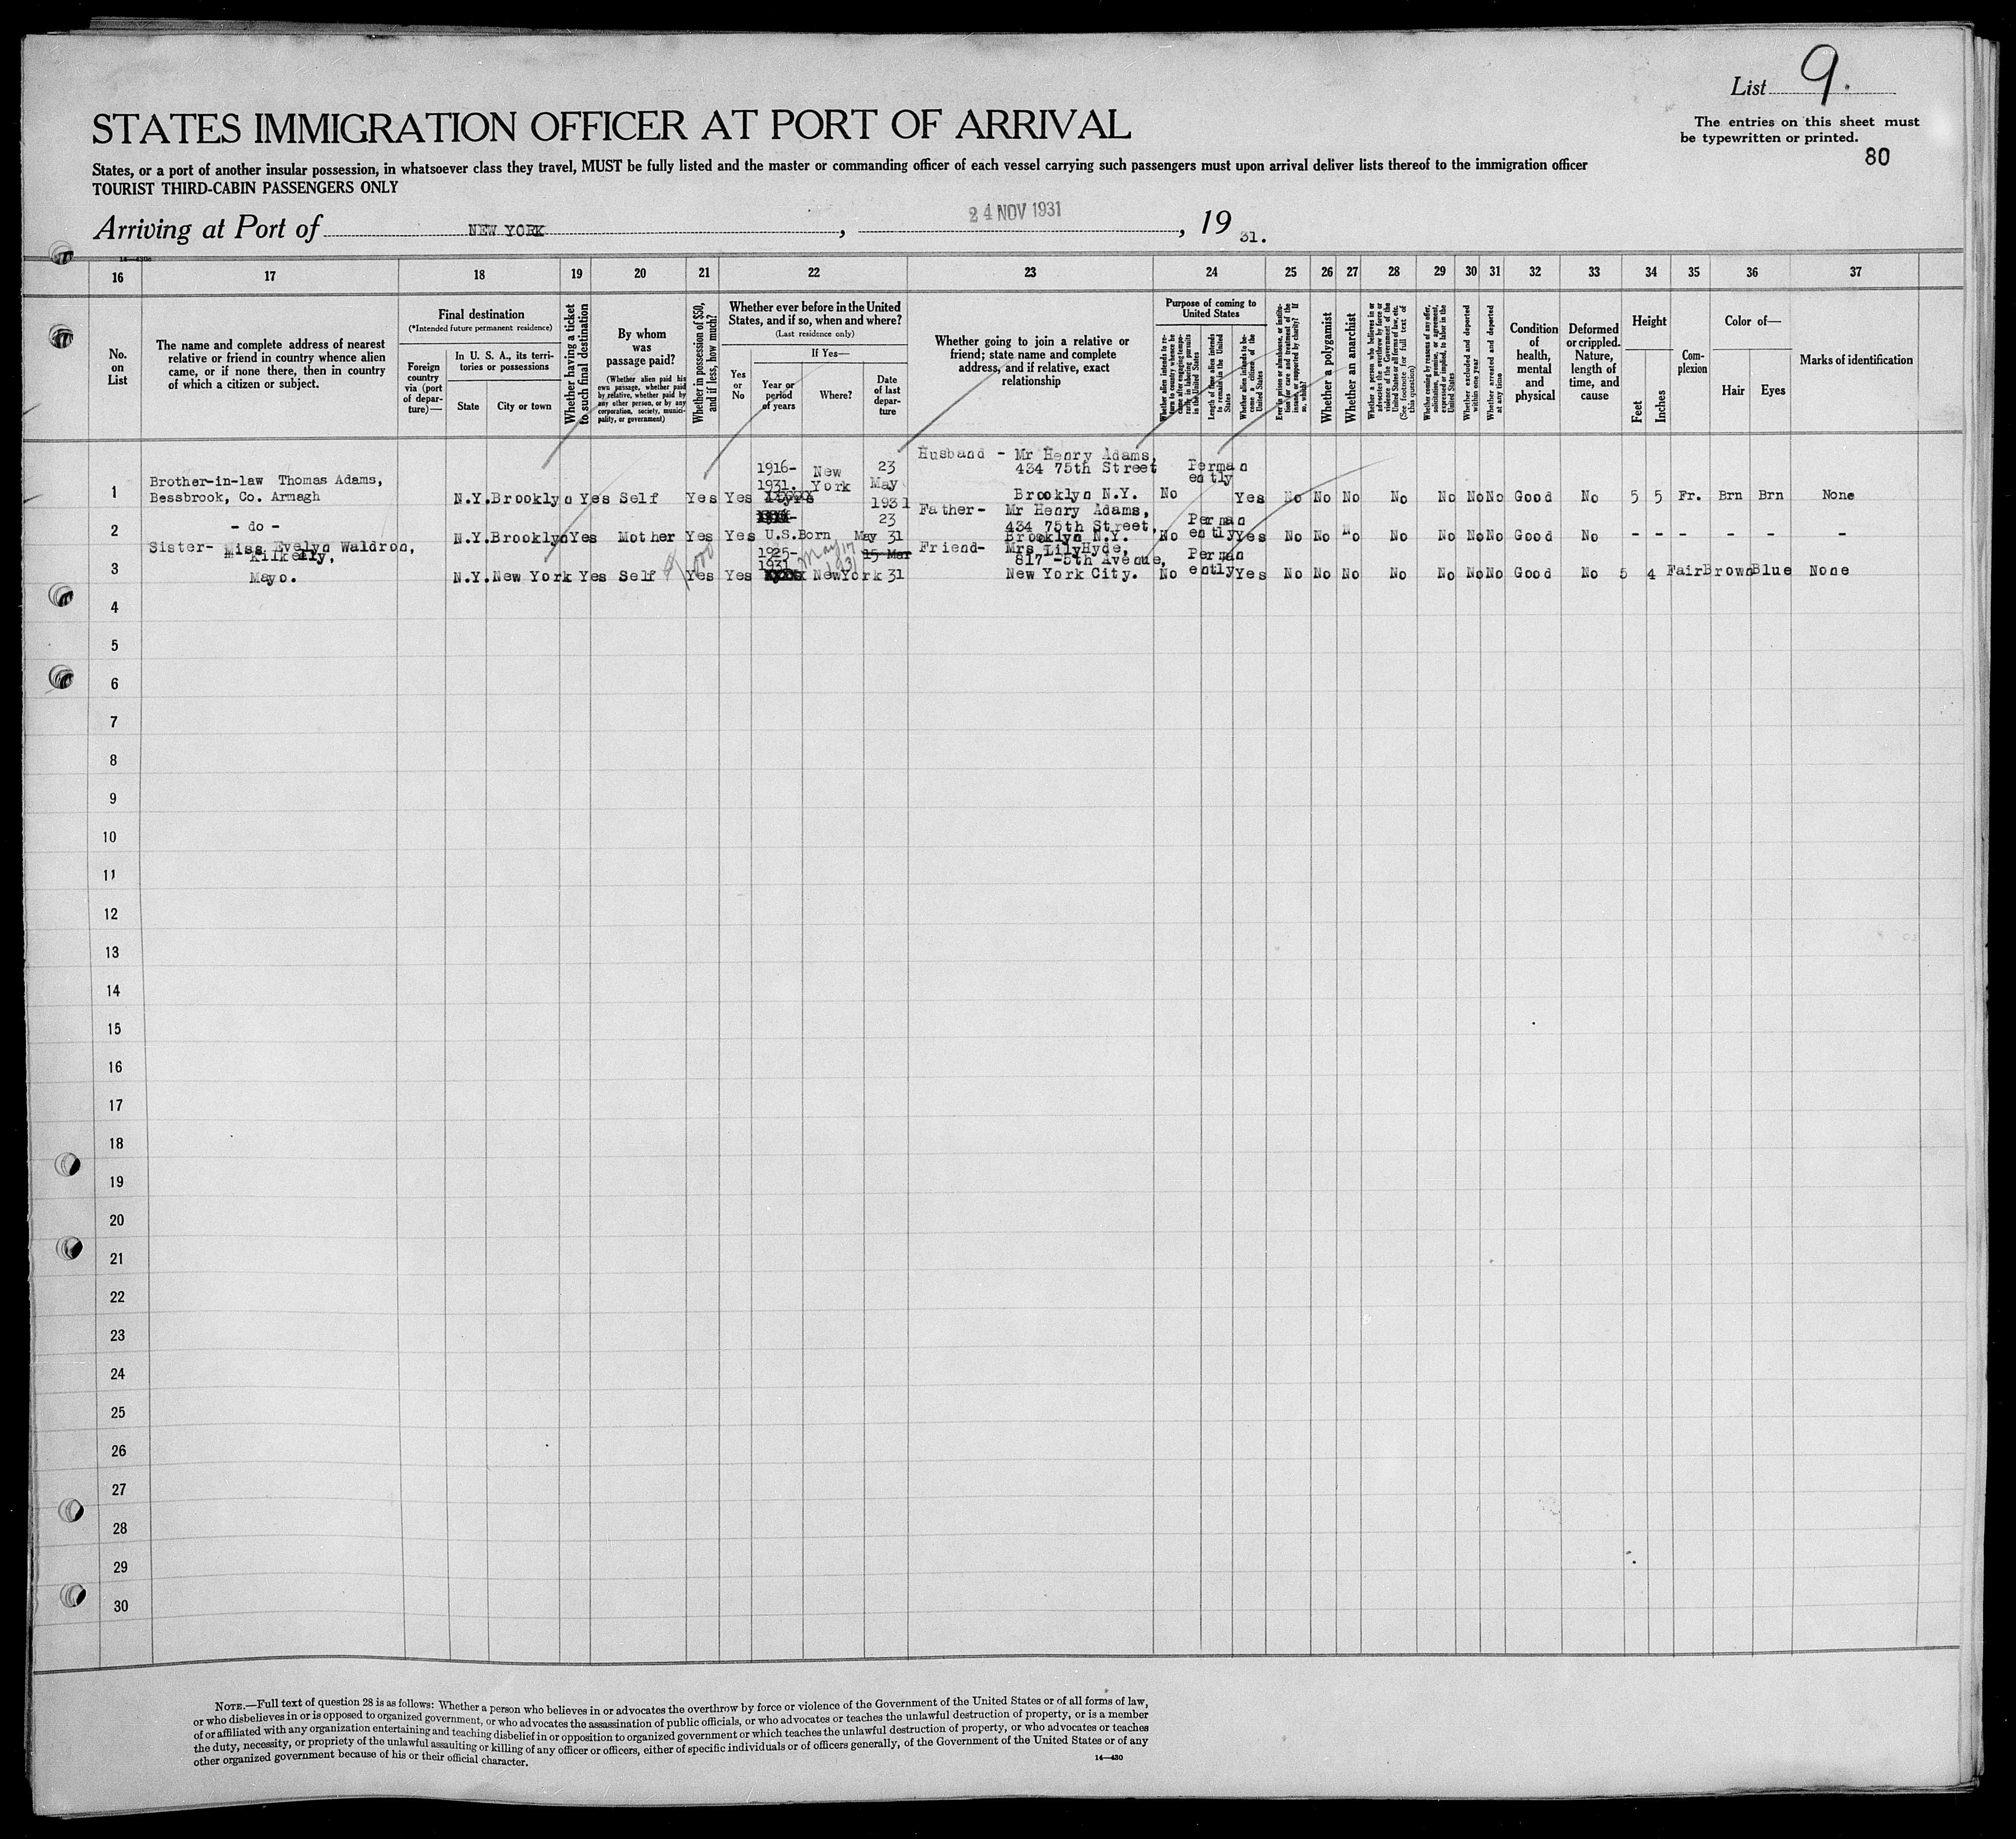 List 9.
The entries on this sheet must
be typewritten or printed.
80
STATES IMMIGRATION OFFICER AT PORT OF ARRIVAL
States, or a port of another insular possession, in whatsoever class they travel, MUST be fully listed and the master or commanding officer of each vessel carrying such passengers must upon arrival deliver lists thereof to the immigration officer
TOURIST THIRD-CABIN PASSENGERS ONLY
Arriving at Port of NEW YORK, 24 NOV 1931, 19 31.
16 17 18 19 20 21 22 23 24 25 26 27 28 29 30 31 32 33 34 35 36 37
No.
on
List
The name and complete address of nearest
relative or friend in country whence alien
came, or if none there, then in country
of which a citizen or subject.
Final destination
(*Intended future permanent residence)
Foreign
country
via (port
of depar-
ture)—
In U. S. A., its terri-
tories or possessions
State
City or town
Whether having a ticket
to such final destination
By whom
was
passage paid?
(Whether alien paid his
own passage, whether paid
by relative, whether paid by
any other person, or by any
corporation, society, munici-
pality, or government)
Whether in possession of $50,
and if less, how much?
Whether ever before in the United
States, and if so, when and where?
(Last residence only)
Yes
or
No
If Yes—
Year or
period
of years
Where?
Date
of last
depar-
ture
Whether going to join a relative or
friend; state name and complete
address, and if relative, exact
relationship
Purpose of coming to
United States
Whether alien intends to re-
turn to country whence he
came after engaging tempo-
rarily in laboring pursuits
in the United States
Length of time alien intends
to remain in the United
States
Whether alien intends to be-
come a citizen of the
United States
Ever in prison or almshouse, or institu-
tion for care and treatment of the
insane, or supported by charity? If
so, which?
Whether a polygamist
Whether an anarchist
Whether a person who believes in or
advocates the overthrow by force or
violence of the Government of the
United States or all forms of law, etc.
(See footnote for full text of
this question)
Whether coming by reason of any offer,
solicitation, promise, or agreement,
expressed or implied, to labor in the
United States
Whether excluded and deported
within one year
Whether arrested and deported
at any time
Condition
of
health,
mental
and
physical
Deformed
or crippled.
Nature,
length of
time, and
cause
Height
Feet
Inches
Com-
plexion
Color of—
Hair
Eyes
Marks of identification
1
Brother-in-law Thomas Adams,
Bessbrook, Co. Armagh
N.Y. Brooklyn Yes Self Yes Yes
1916-
1931.
New
York
23
May
1931
Husband - Mr Henry Adams,
434 75th Street
Brooklyn N.Y.
No
Perman
ently
Yes No No No No No No No Good No 5 5 Fr. Brn Brn None
2
- do -
N.Y. Brooklyn Yes Mother Yes Yes U.S. Born
23
May 31
Father- Mr Henry Adams,
434 75th Street,
Brooklyn N.Y.
No
Perman
ently
Yes No No No No No No No Good No - - - - - -
3
Sister- Miss Evelyn Waldron,
Kilkelly,
Mayo.
N.Y. New York Yes Self
$1000
Yes Yes
1925-
1931
New York
May 17
1931
15 Mar
31
Friend- Mrs Lily Hyde,
817 -5th Avenue,
New York City.
No
Perman
ently
Yes No No No No No No No Good No 5 4 Fair Brown Blue None
4
5
6
7
8
9
10
11
12
13
14
15
16
17
18
19
20
21
22
23
24
25
26
27
28
29
30
NOTE.—Full text of question 28 is as follows: Whether a person who believes in or advocates the overthrow by force or violence of the Government of the United States or of all forms of law,
or who disbelieves in or is opposed to organized government, or who advocates the assassination of public officials, or who advocates or teaches the unlawful destruction of property, or is a member
of or affiliated with any organization entertaining and teaching disbelief in or opposition to organized government or which teaches the unlawful destruction of property, or who advocates or teaches
the duty, necessity, or propriety of the unlawful assaulting or killing of any officer or officers, either of specific individuals or of officers generally, of the Government of the United States or of any
other organized government because of his or their official character.
14—430